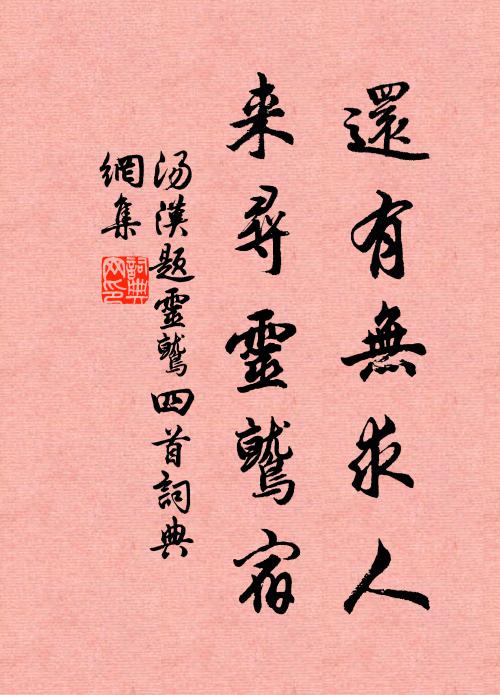 還有無求人
来尋靈鷲宿
汤漢題靈鷲四首詞典
網集
詞典
网印